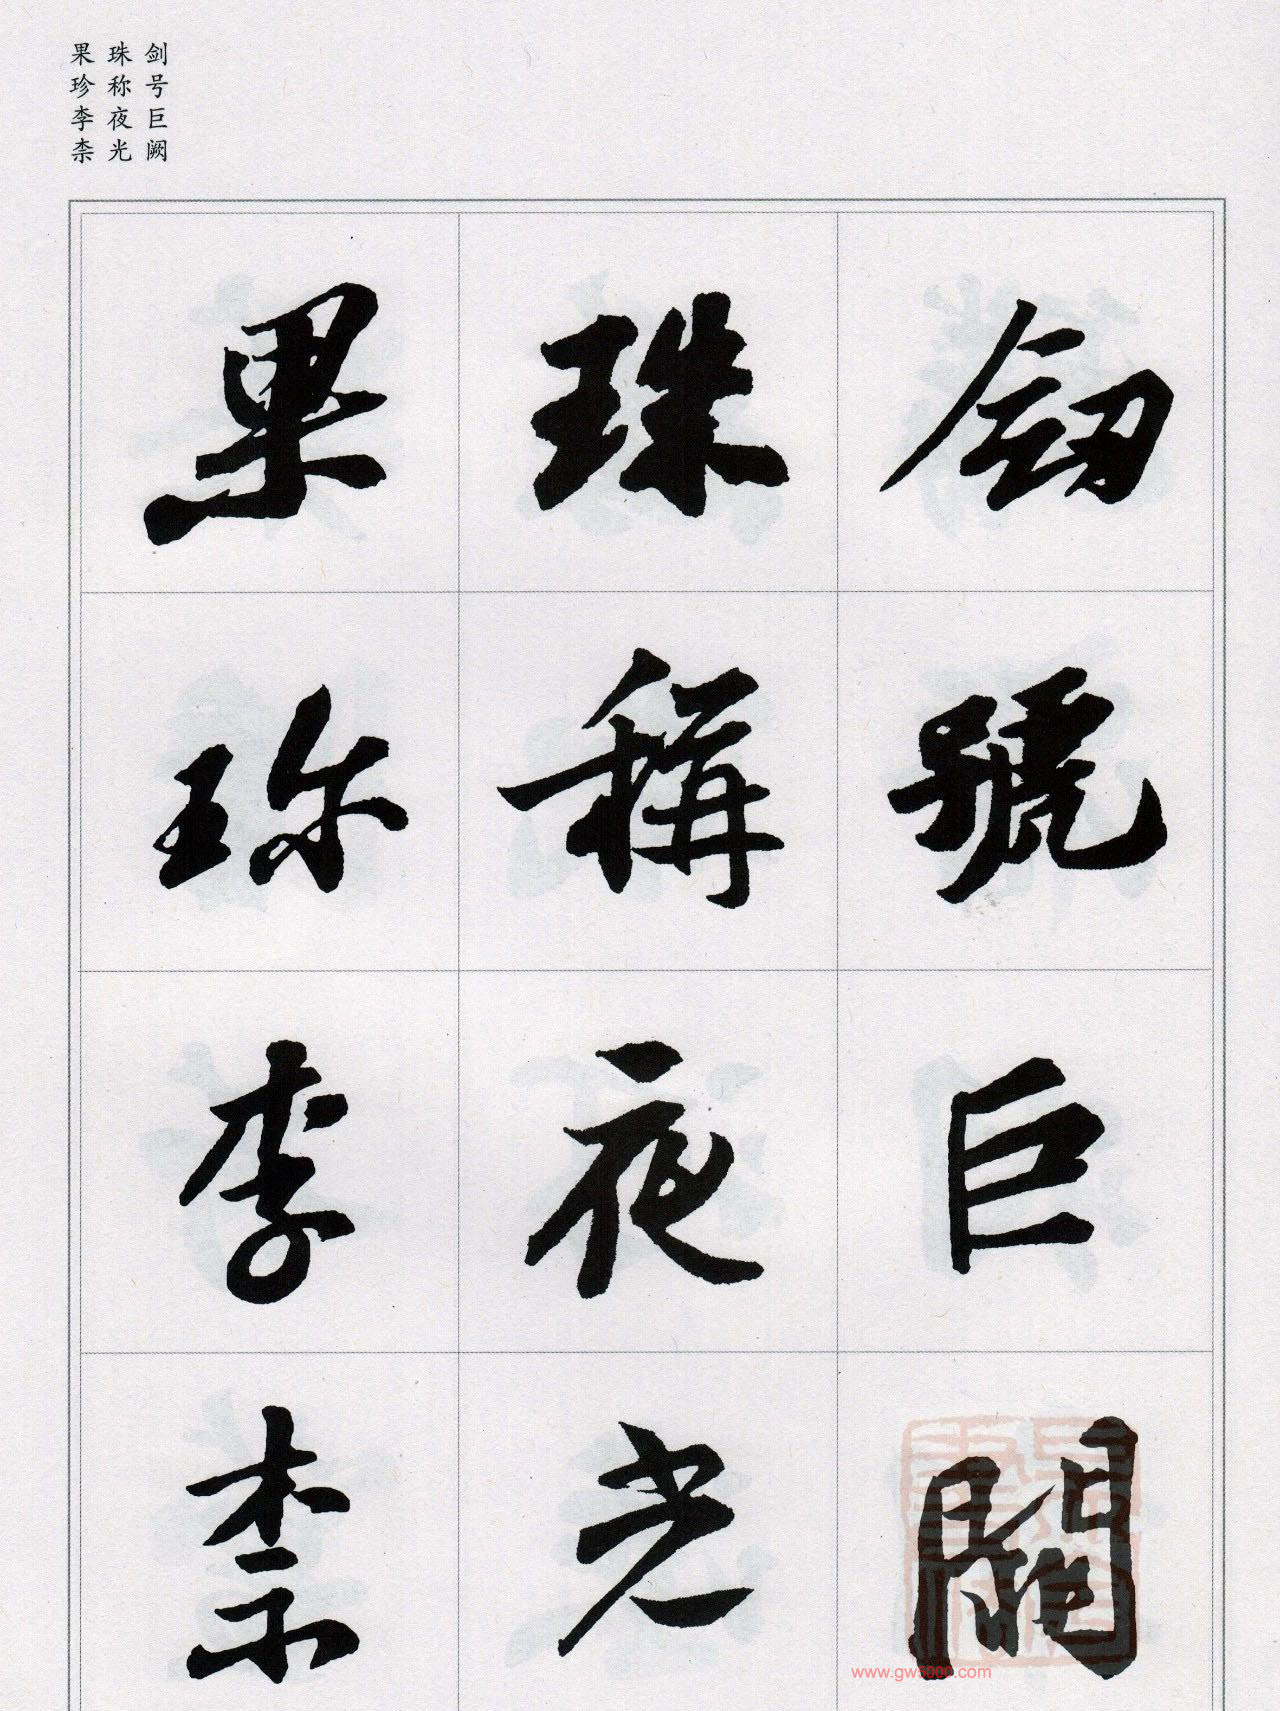 剑号巨阙
珠称夜光
果珍李柰
劒號巨闕
珠稱夜光
果珎李柰
www.gw5000.com